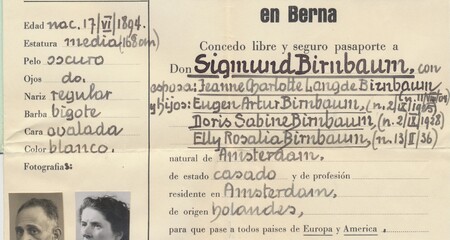 Edad nac. 17/VI/1894.
Estatura media (168 cm)
Pelo oscuro
Ojos do.
Nariz regular
Barba bigote
Cara ovalada
Color blanco.
Fotografías:
en Berna
Concedo libre y seguro pasaporte a
Don Sigmund Birnbaum, con
esposa: Jeanne Charlotte Lang de Birnbaum
y hijos: Eugen Artur Birnbaum,
Doris Sabine Birnbaum,
Elly Rosalia Birnbaum, (n. 13/II/36)
natural de Amsterdam,
de estado casado y de profesión
residente en Amsterdam,
de origen holandes,
para que pase a todos países de Europa y America.